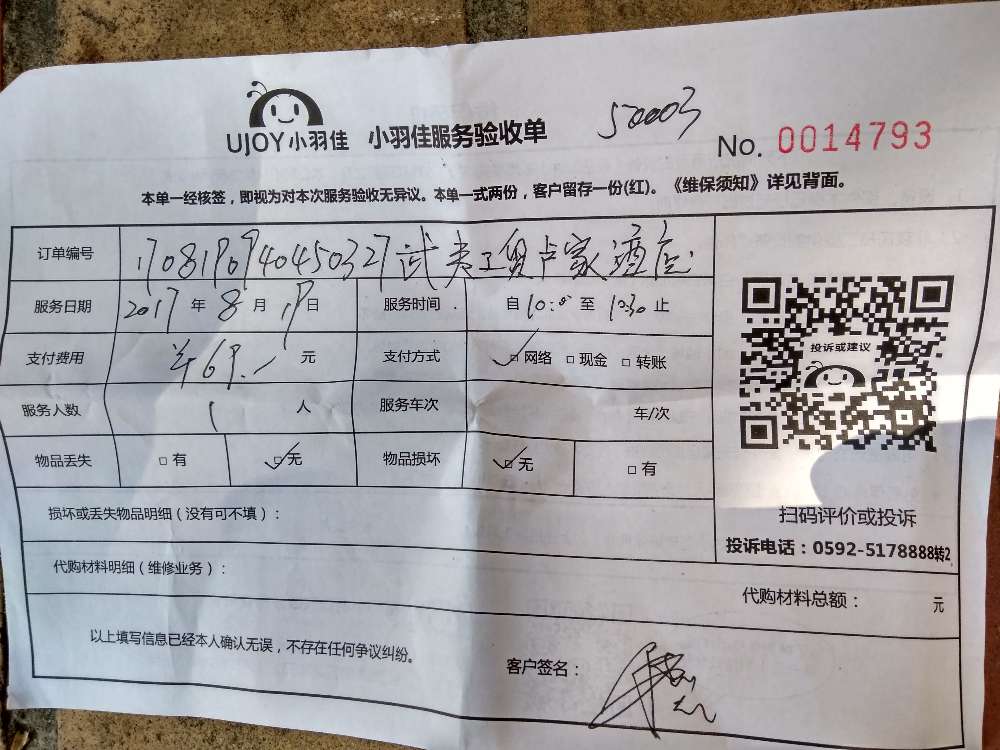 UJOY小羽佳 小羽佳服务验收单 50003 No. 0014793
本单一经核签，即视为对本次服务验收无异议。本单一式两份，客户留存一份(红)。《维保须知》详见背面。
订单编号
服务日期 2017 年 8 月 19 日 服务时间 自 10:00 至 10:30 止
支付费用 ¥69.- 元 支付方式 ☑网络 □现金 □转账
服务人数 1 人 服务车次 车/次
物品丢失 □有 ☑无 物品损坏 ☑无 □有
投诉或建议
扫码评价或投诉
投诉电话：0592-5178888转2
损坏或丢失物品明细（没有可不填）：
代购材料明细（维修业务）：
代购材料总额： 元
以上填写信息已经本人确认无误，不存在任何争议纠纷。
客户签名：